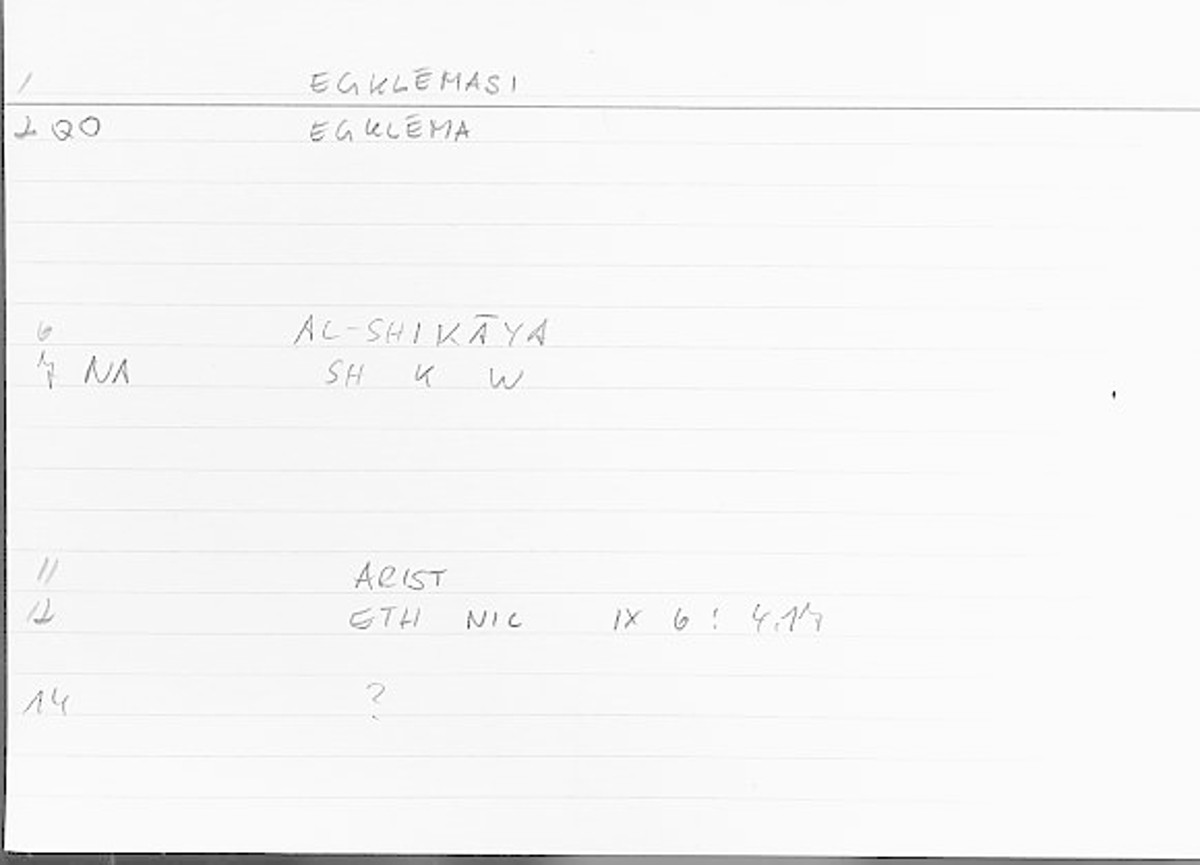 1 EGKLĒMASI
2 QO EGKLĒMA
6 AL-SHIKĀYA
7 NA SH K W
11 ARIST
12 ETH NIC IX 6 : 4.14
14 ?